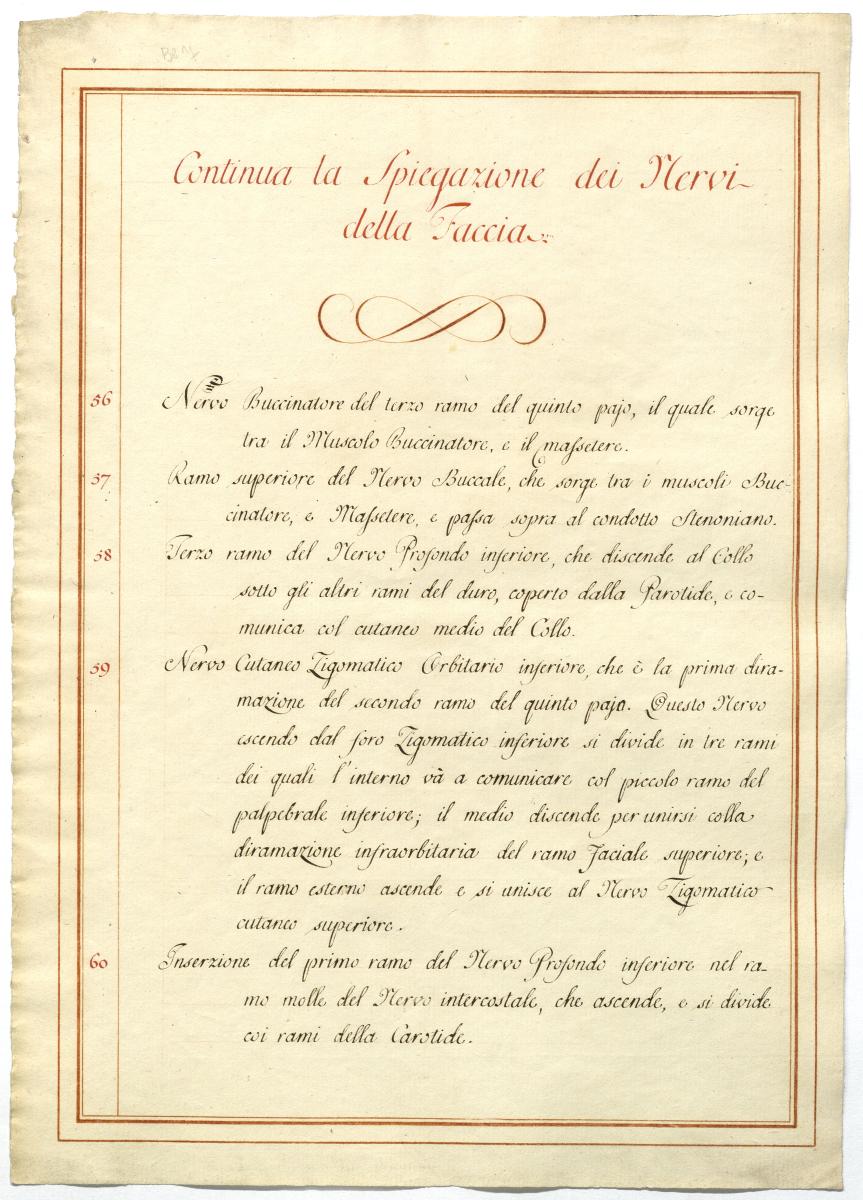 Continua la Spiegazione dei Nervi
della Faccia.
56 Nervo Buccinatore del terzo ramo del quinto pajo, il quale sorge
tra il Muscolo Buccinatore, e il massetere.
57 Ramo superiore del Nervo Buccale, che sorge tra i muscoli Buc-
cinatore, e Massetere, e passa sopra al condotto Stenoniano.
58 Terzo ramo del Nervo Profondo inferiore, che discende al Collo
sotto gli altri rami del duro, coperto dalla Parotide, e co-
munica col cutaneo medio del Collo.
59 Nervo Cutaneo Zigomatico Orbitario inferiore, che è la prima dira-
mazione del secondo ramo del quinto pajo. Questo Nervo
escendo dal foro Zigomatico inferiore si divide in tre rami
dei quali l'interno và a comunicare col piccolo ramo del
palpebrale inferiore; il medio discende per unirsi colla
diramazione infraorbitaria del ramo faciale superiore; e
il ramo esterno ascende e si unisce al Nervo Zigomatico
cutaneo superiore.
60 Inserzione del primo ramo del Nervo Profondo inferiore nel ra-
mo molle del Nervo intercostale, che ascende, e si divide
coi rami della Carotide.